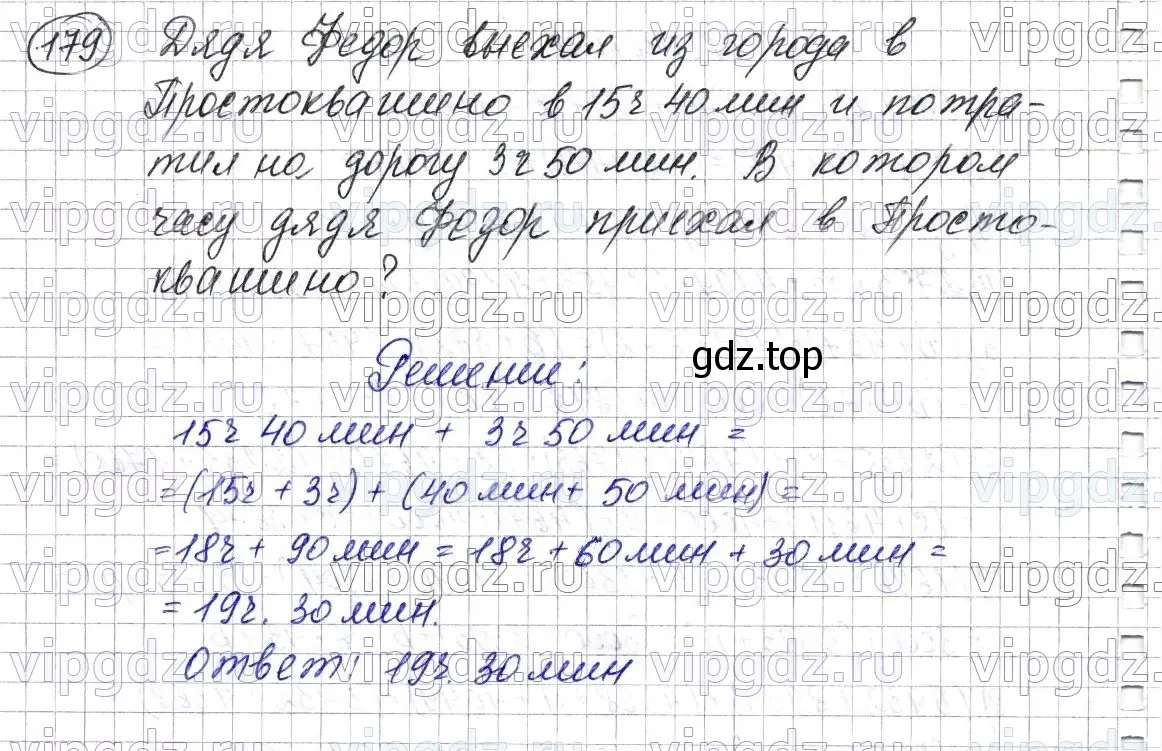 179 Дядя Федор выехал из города в
Простоквашино в 15ч 40 мин и потра-
тил на дорогу 3ч 50 мин. В котором
часу дядя Федор приехал в Просто-
квашино?
Решение:
gdz.top
15ч 40 мин + 3ч 50 мин =
=(15ч + 3ч) + (40 мин + 50 мин) =
=18ч + 90 мин = 18ч + 60 мин + 30 мин =
= 19ч. 30 мин.
Ответ: 19ч. 30 мин
vipgdz.ru